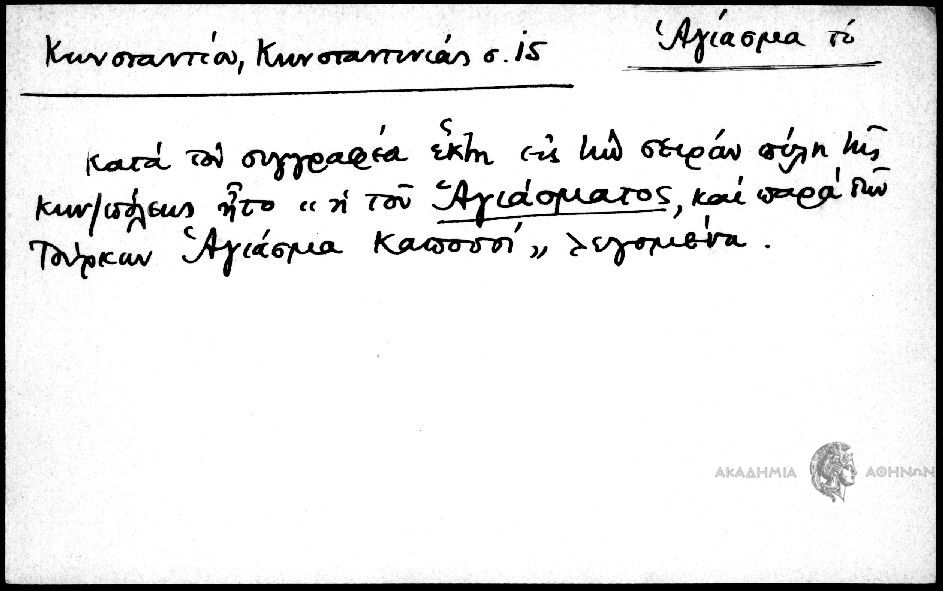 Κωνσταντίου, Κωνσταντινιάς σ. 15
Ἁγίασμα τό
Κατά τόν συγγραφέα ἕκτη εἰς τήν σειράν πύλη τῆς
Κων/πόλεως ἦτο "ἡ τοῦ Ἁγιάσματος, καί παρά τῶν
Τούρκων Ἁγιάσμα Καπουσί" λεγομένη.
ΑΚΑΔΗΜΙΑ ΑΘΗΝΩΝ